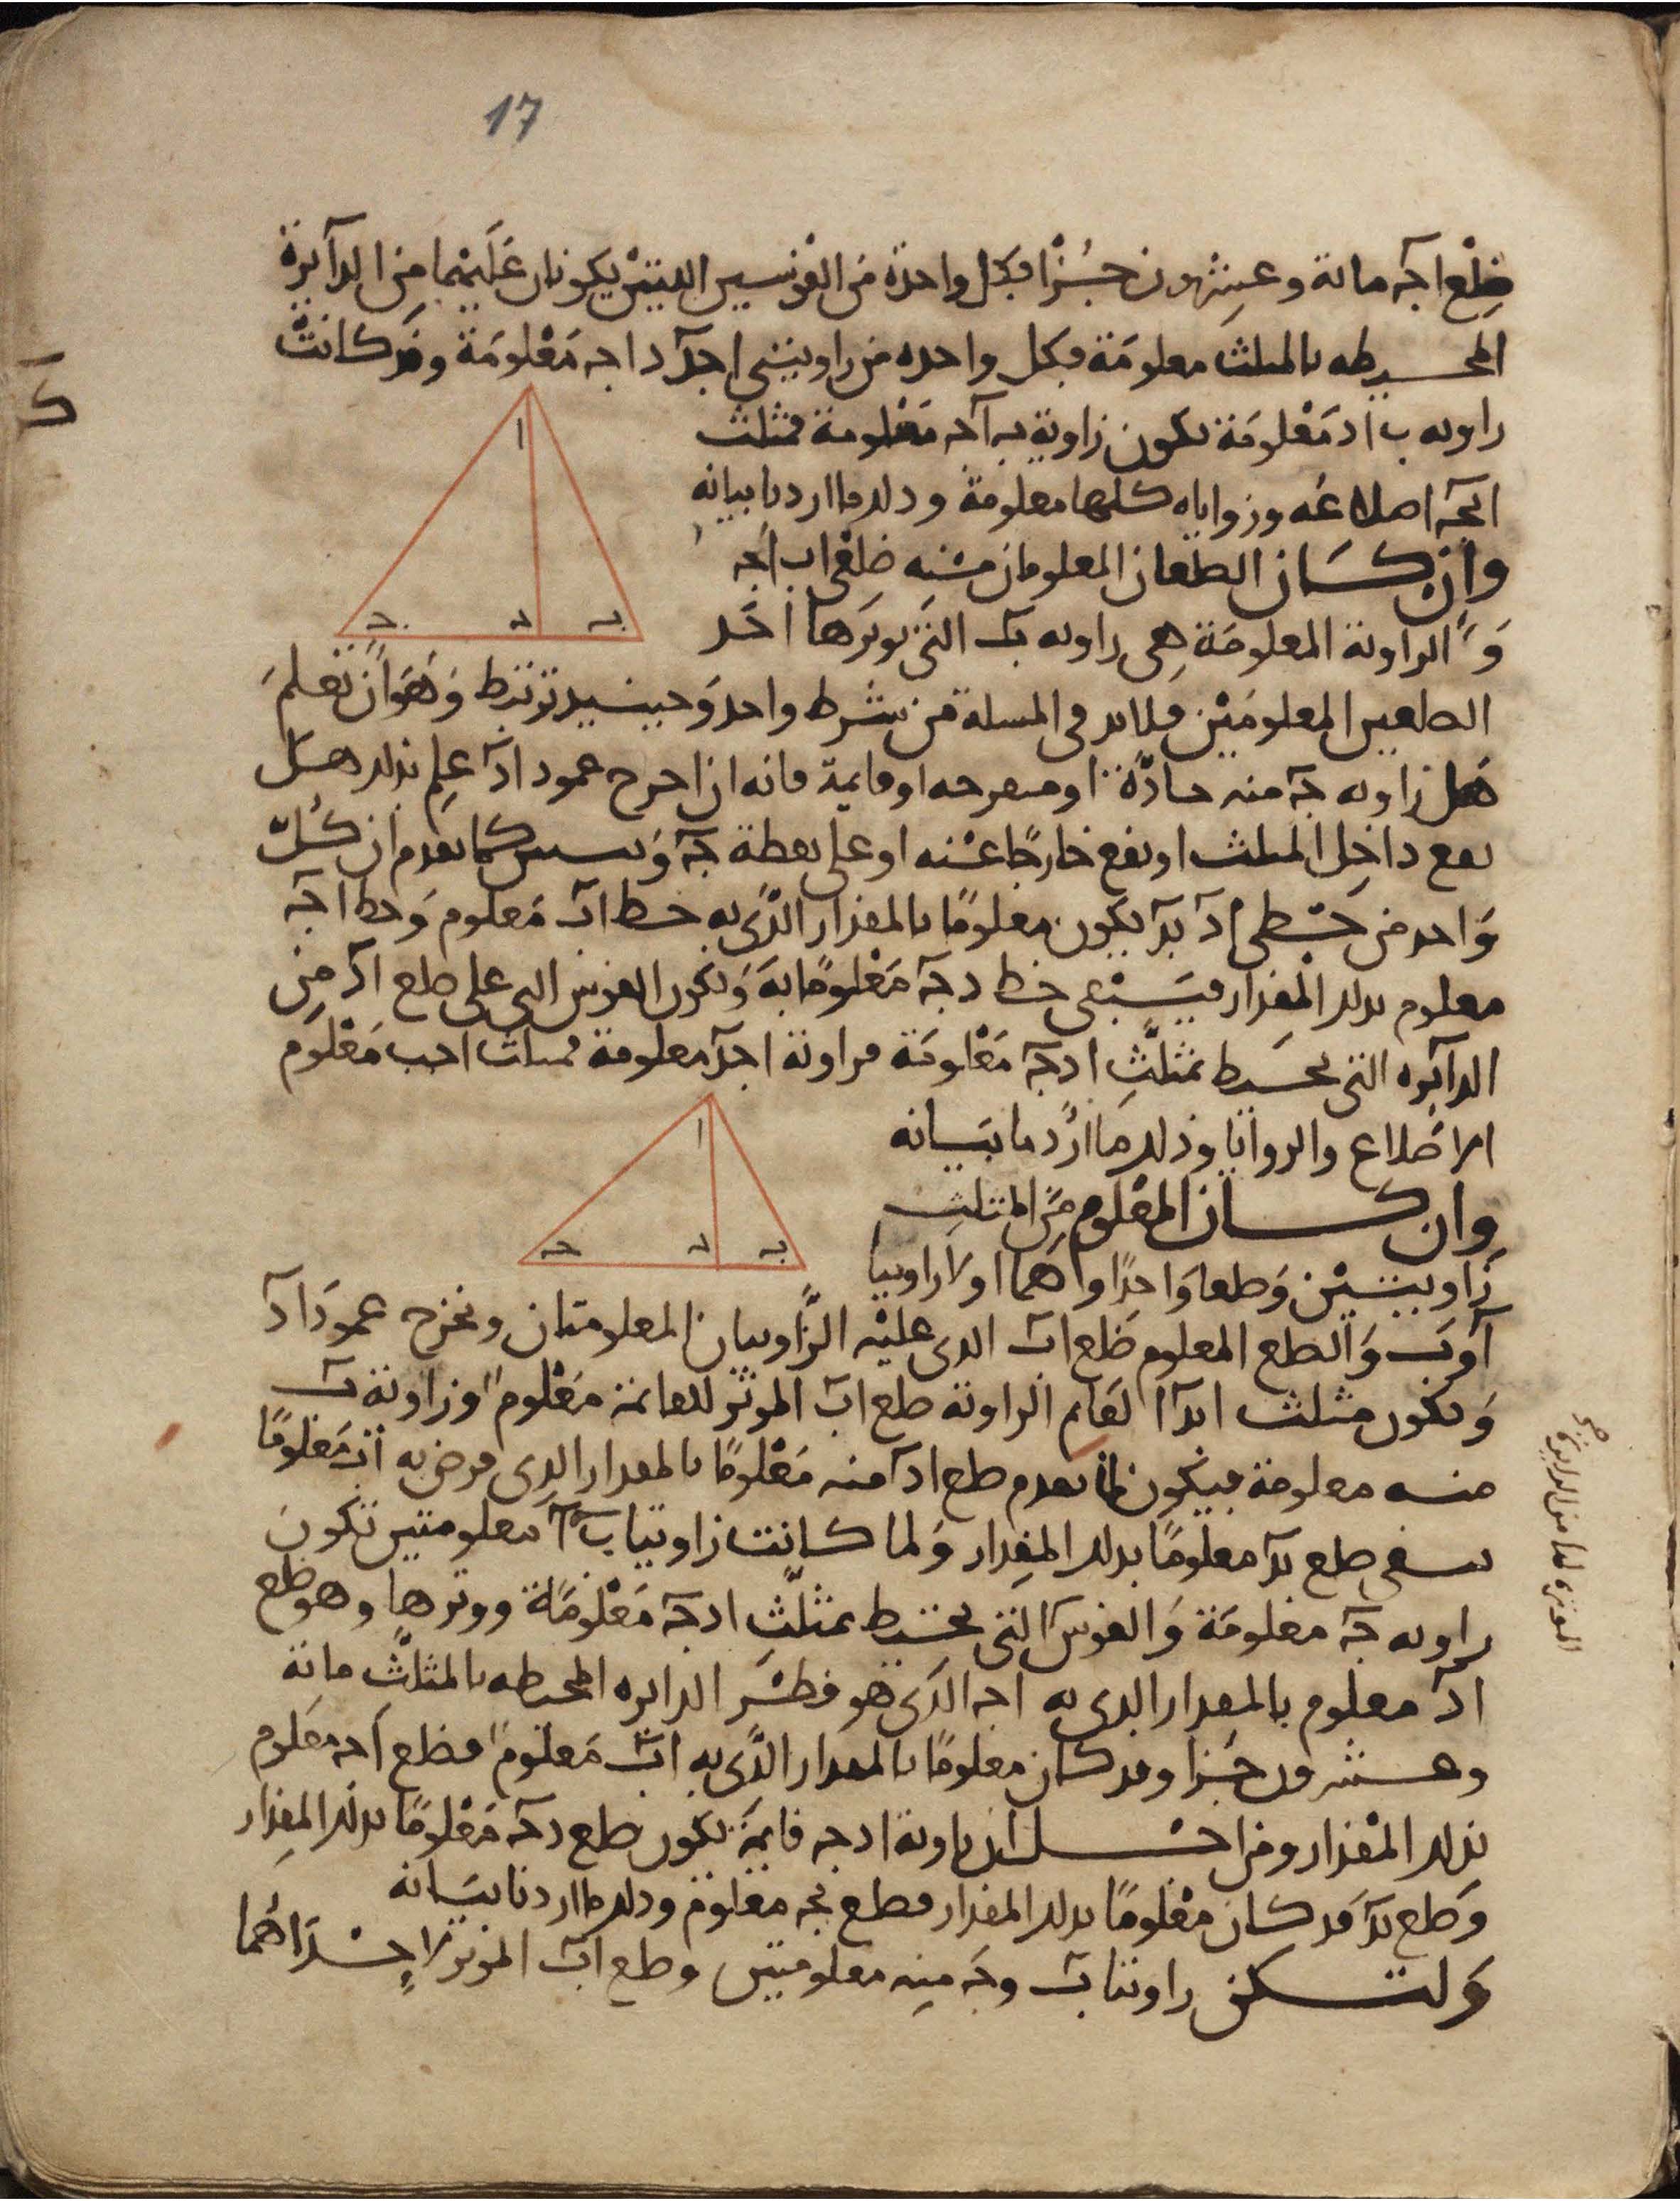 17
ضلع اجـ مائة وعشرون جزءا فكل واحدة من القوسين اللتين يكونان عليهما من الدائرة
المحيطه بالمثلث معلومة فكل واحده من زاويتي اجد داجـ معلومة وقد كانت
زاويه ب اد معلومة تكون زاوية ب اجـ معلومة فمثلث
ابجـ اضلاعه وزواياه كلها معلومة وذلك ما اردنا بيانه
وان كان الضلعان المعلومان منه ضلعي اب اجـ
والزاوية المعلومة هي زاويه ب التي يوترها احد
الضلعين المعلومين فلا بد في المسلة من شرط واحد وحينيذ ترتبط وهو ان نعلم
هل زاويه جـ منه حادة او منفرجه او قايمة فانه ان اخرج عمود اد علم بذلك هل
يقع داخل المثلث او يقع خارجا عنه او على نقطة جـ ويتبين كما تقدم ان كل
واحد من خطي اد بد يكون معلوما بالمقدار الذي به خط اب معلوم وخط اجـ
معلوم بذلك المقدار فيبقى خط دجـ معلوما به وتكون القوس التي على ضلع اد من
الدائره التي تحيط بمثلث ادجـ معلومة فزاوية اجد معلومة فمثلث اجب معلوم
الاضلاع والزوايا وذلك ما اردنا بيانه
وان كان المعلوم من المثلث
زاويتين وضلعا واحدا واهما اولا زاويتا
ا وب والضلع المعلوم ضلع اب الذي عليه الزاويتان المعلومتان ونخرج عمود اد
وتكون مثلث ابد القايم الزاوية ضلع اب الموتر للقائمة معلوم وزاوية ب
منه معلومة فيكون لما تقدم ضلع اد منه معلوما بالمقدار الذي فرض به اب معلوما
يبقى ضلع بد معلوما بذلك المقدار ولما كانت زاويتا ب ا معلومتين تكون
زاويه جـ معلومة والقوس التي تحيط بمثلث ادجـ معلومة ووترها وهو ضلع
اد معلوم بالمقدار الذي به اجـ الذي هو قطر الدايره المحيطه بالمثلث مائة
وعشرون جزءا وقد كان معلوما بالمقدار الذي به اب معلوم فضلع اجـ معلوم
بذلك المقدار ومن اجل ان زاوية ادجـ قايمة تكون ضلع دجـ معلوما بذلك المقدار
وضلع بد قد كان معلوما بذلك المقدار فضلع بجـ معلوم وذلك ما اردنا بيانه
ولتكن زاويتا ب وجـ منه معلومتين وضلع اب الموتر لاحداهما
ا
ب
د
جـ
ا
ب
د
جـ